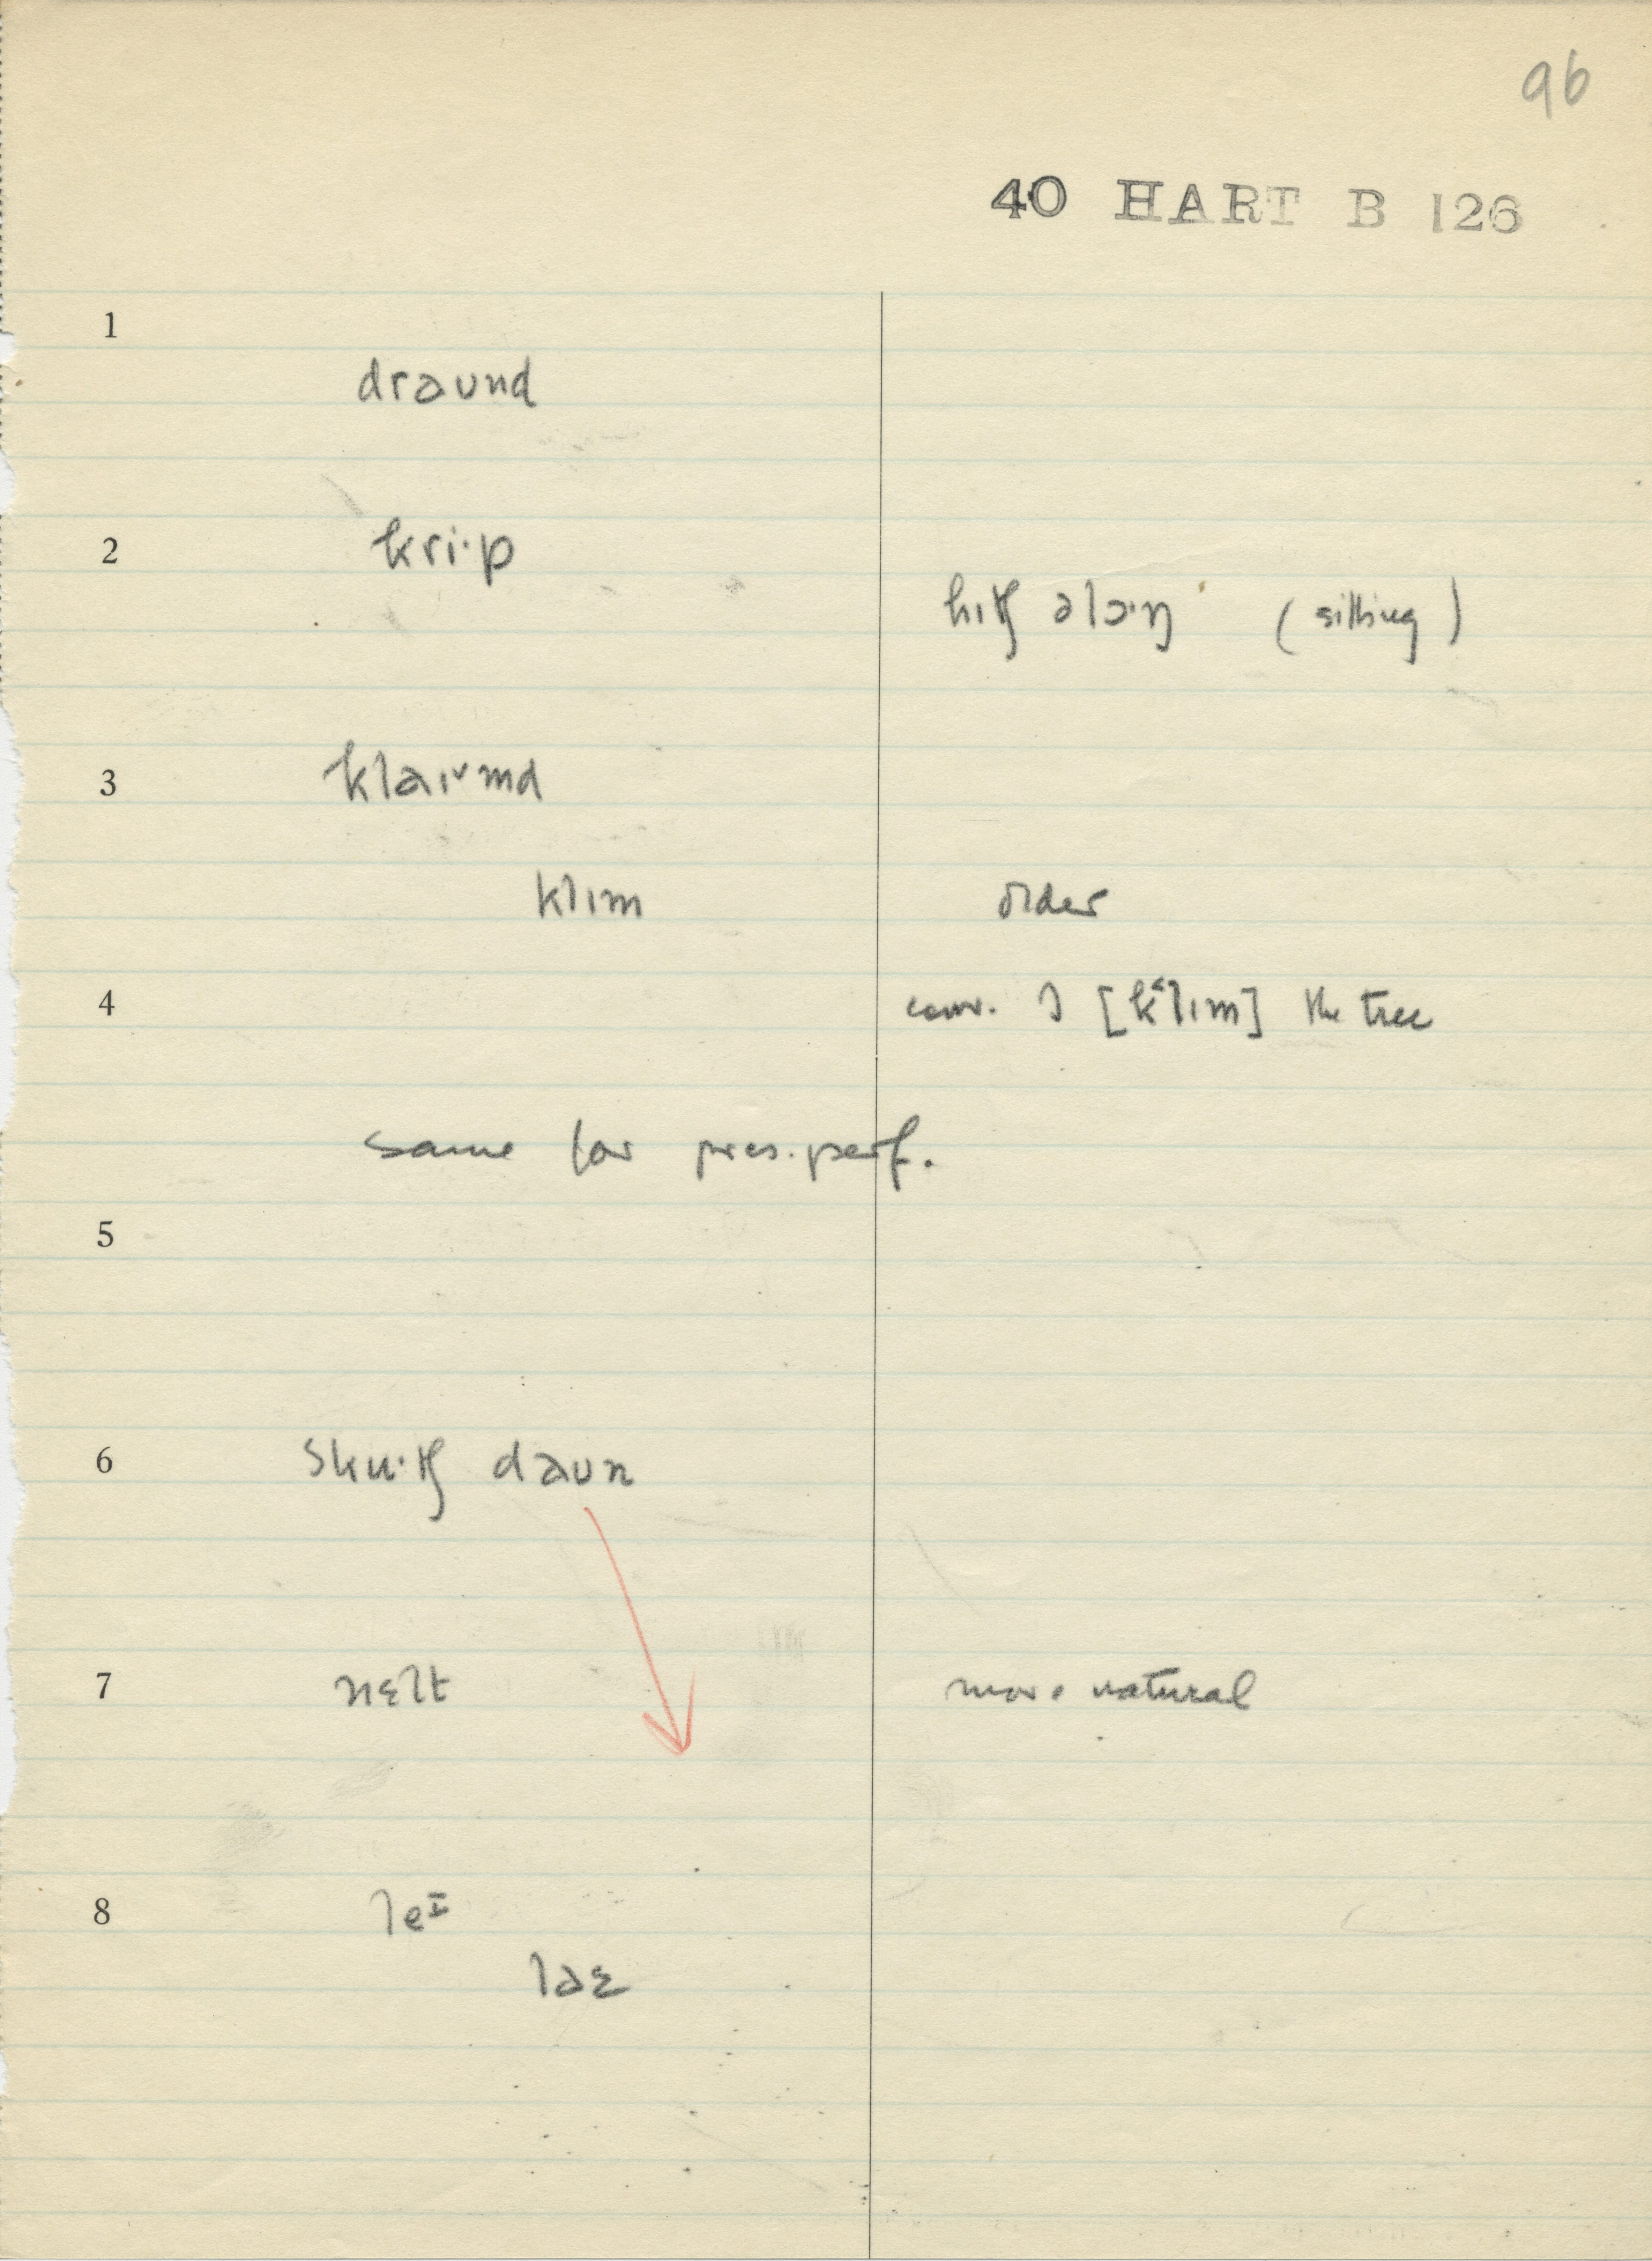 96
40 HART B 126
1
draʊnd
2
kri·p
hɪtʃ əlɔ·ŋ (sitting)
3
klaɪ˅md
klɪm older
4
conv. I [k˂lɪm] the tree
same for pres. perf.
5
6
sku·tʃ daʊn
7
nɛlt more natural
8
leᴵ
laɛ